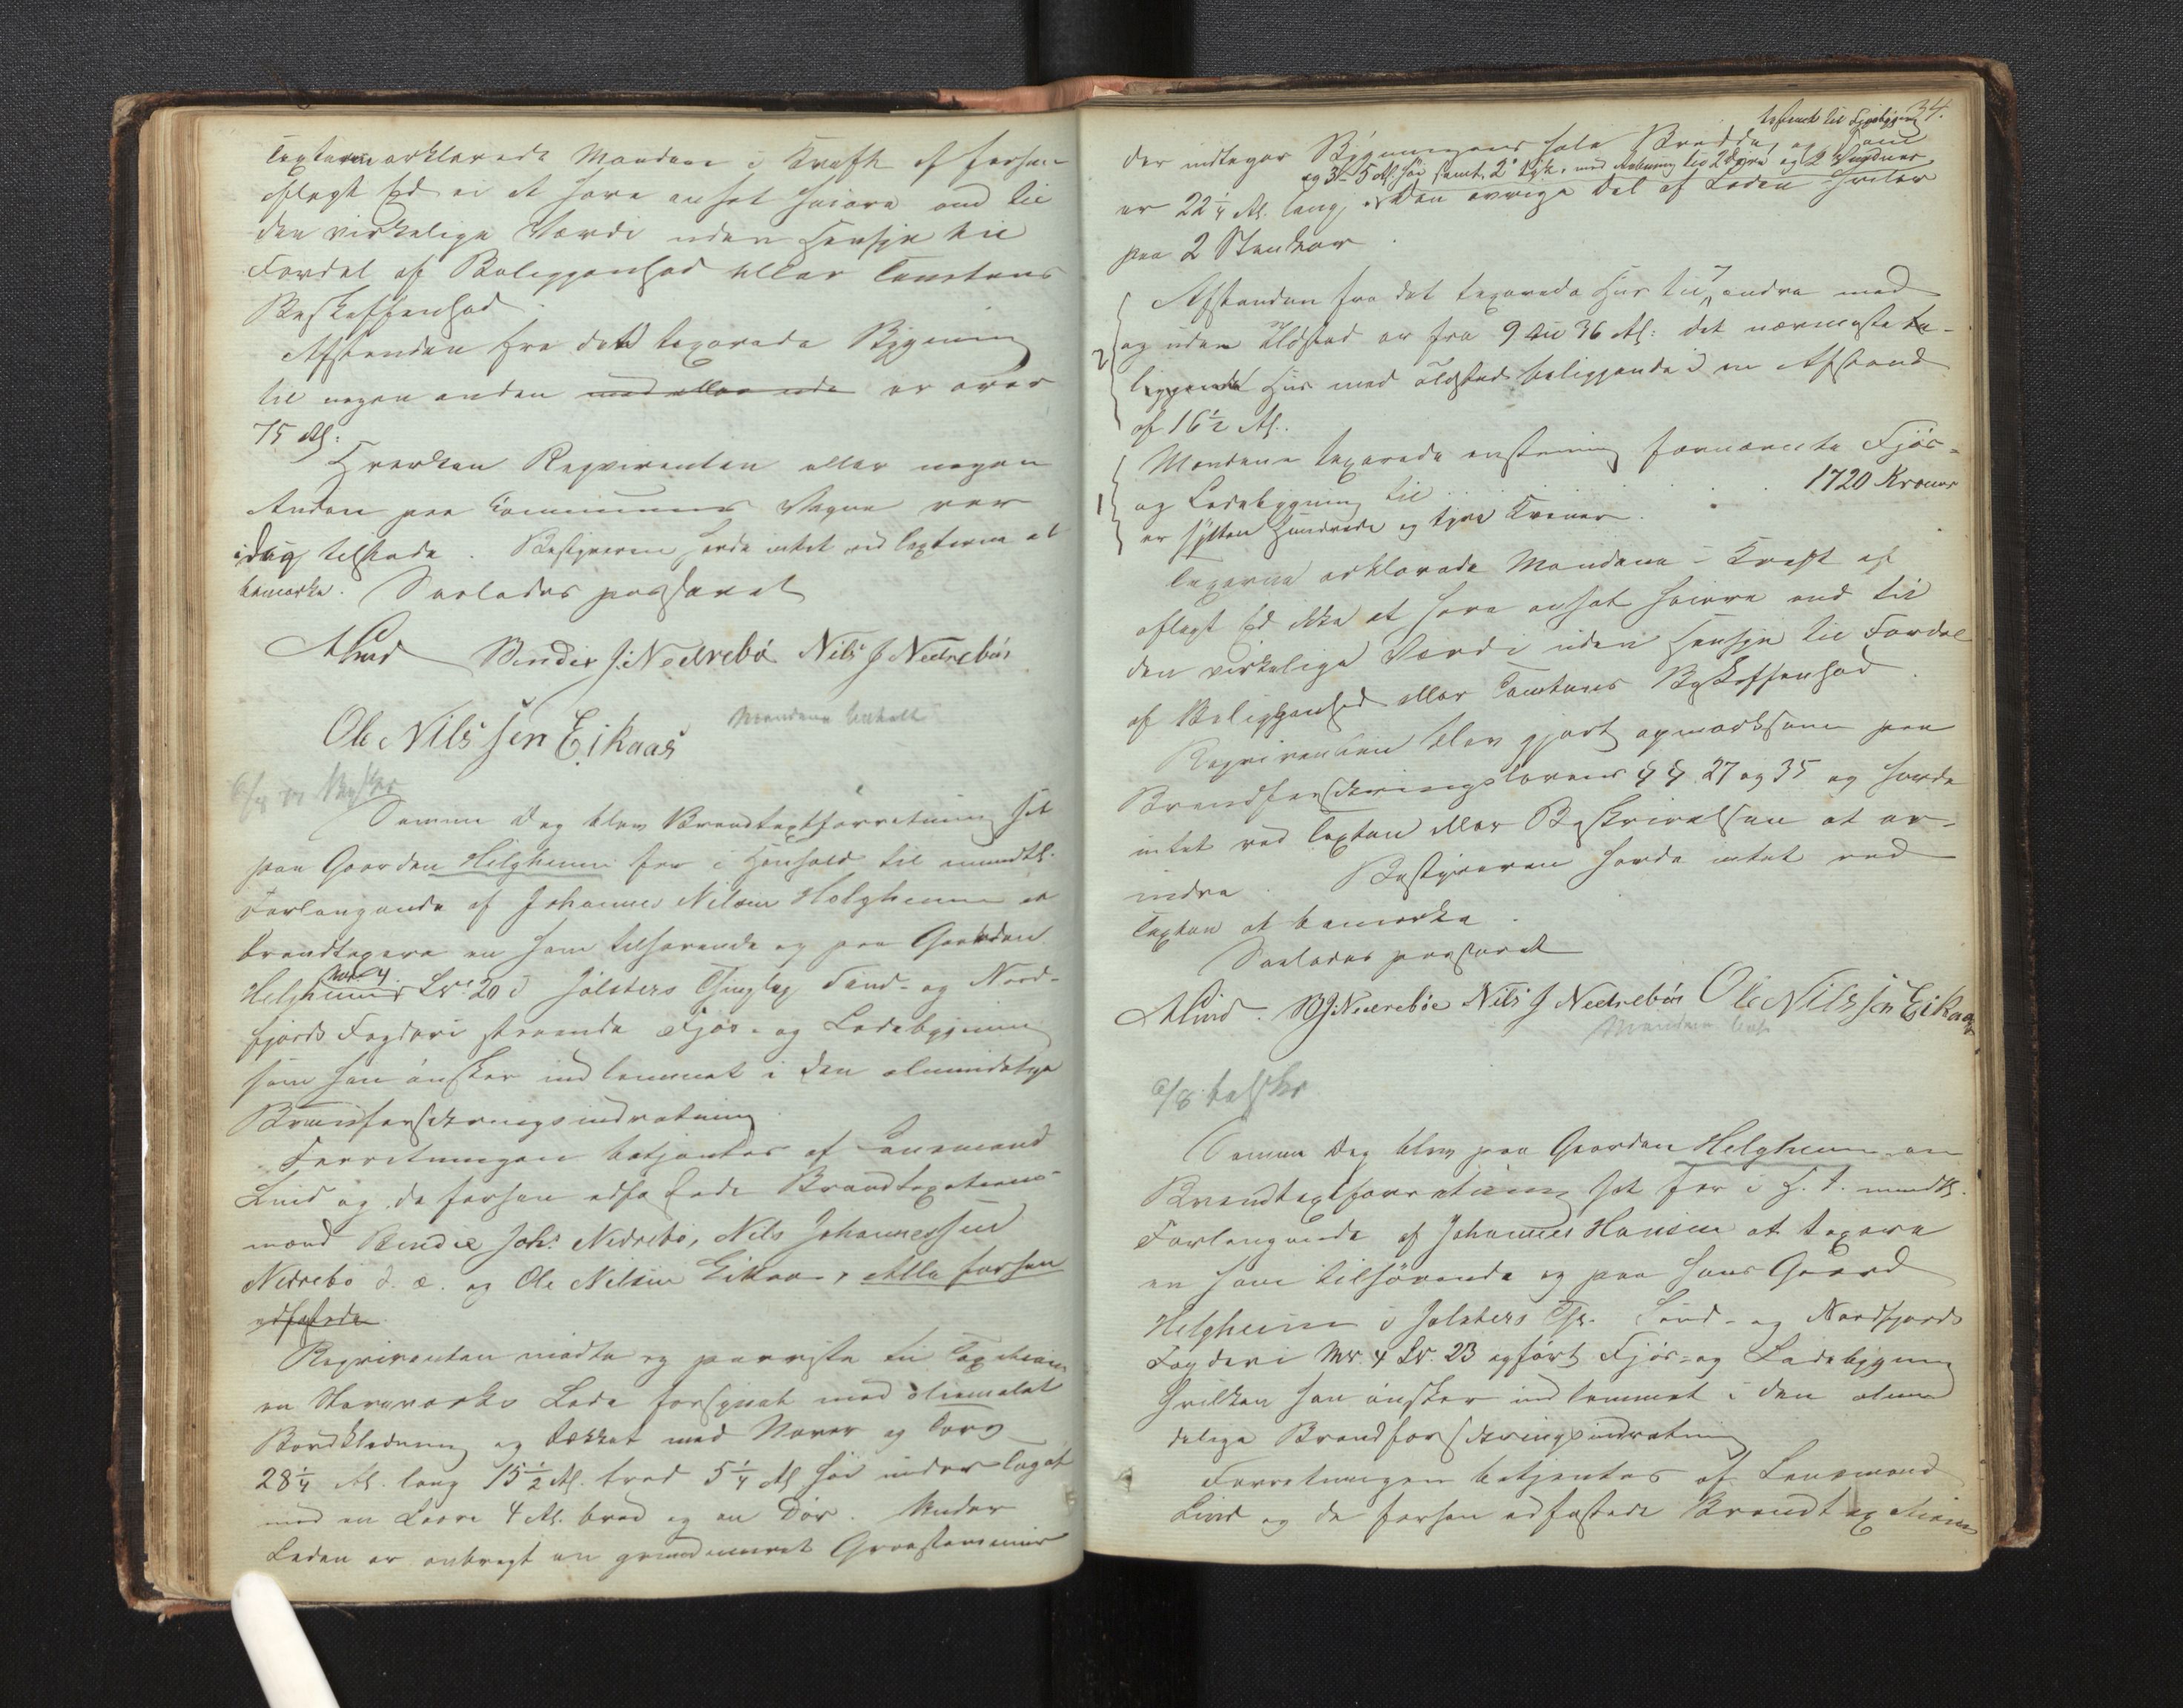 Taxterne erklærede Mændene i Kraft af forhen
aflagt Ed ei at have ansat høiere end til
den virkelige Værdi uden Hensyn til
Fordel af Beliggenhed eller Tomtens
Beskaffenhed
Afstanden fra det taxerede Bygning
til nogen anden med eller uden er over
75 Al:
Hverken Reqvirenten eller nogen
Anden paa Communens Vegne var
idag tilstede. Bestyreren havde intet ved Taxterne at
bemærke. Saaledes passeret
ALind Bendix J: Nedrebø Nils J Nedrebøe
Ole Nilssen Eikaas
Mændene betalt
Samme Dag blev Brandtaxtforretning sat
paa Gaarden Helgheim for i Henhold til mundtl.
Forlangende af Johannes Nilsen Helgheim at
brandtaxere en ham tilhørende og paa Gaarden
Mn 4.
Helgheims Lr. 20 i Jølsters Thinglag Sønd- og Nord-
fjords Fogderi staaende Fjøs- og Ladebygning
som han ønsker indlemmet i den almindelige
Brandforsikringsindretning
Forretningen betjentes af Lensmand
Lind og de forhen edfæstede Brandtaxations-
mænd Bendix Johs Nedrebø, Nils Johannessen
Nedrebø d. æ. og Ole Nilsen Eikaas, Alle forhen
edfæstede
Reqvirenten mødte og paaviste til Taxation
en Stavverks Lade forsynet med oliemalet
Bordklædning og tækket med Næver og Torv
28 1/4 Al. lang 15 1/2 Al. bred 5 1/4 Al høi under Taget
med en Laave 4 Al. bred og en Dør. Under
Laden er anbragt en grundmuret Graastensmur
34.
bestemt til Fjøsbygning
der indtager Bygningens hele Bredde, og som
og 3-5 Al. høi samt 2" tyk, med Aabning til 2 Døre og 2 Vinduer.
er 22 1/4 Al. lang, Den øvrige Del af Laden hviler
paa 2 Stenkar.
2 Afstanden fra det taxerede Hus til 7 andre med
og uden Ildsted er fra 9 til 36 Al: det nærmeste be-
liggende Hus med Ildsted beliggende i en Afstand
af 16 1/2 Al.
1 Mændene taxerede enstemmig fornævnte Fjøs-
og Ladebygning til . . . . . . 1720 Kroner
er sytten Hundrede og tyve Kroner.
Taxerne erklærede Mændene i Kraft af
aflagt Ed ikke at have ansat høiere end til
den virkelige Værdi uden Hensyn til Fordel
af Beliggenhed eller Tomtens Beskaffenhed.
Reqvirenten blev gjort opmærksom paa
Brandforsikringslovens §§ 27 og 35 og havde
intet ved Taxten eller Beskrivelsen at er-
indre. Bestyreren havde intet ved
Taxten at bemærke.
Saaledes passeret
ALind. BJNedrebøe Nils J Nedrebøe Ole Nilssen Eikaas
Mændene bet
6/8 besk
Samme Dag blev paa Gaarden Helgheim en
Brandtaxtforretning sat for i H. t. mundtl.
Forlangende af Johannes Hansen at taxere
en ham tilhørende og paa hans Gaard
Helgheim i Jølsters Thl. Sønd- og Nordfjords
Fogderi Mr. 4 Lr. 23 opført Fjøs- og Ladebygning
hvilken han ønsker indlemmet i den almin
delige Brandforsikringsindretning
Forretningen betjentes af Lensmand
Lind og de forhen edfæstede Brandtaxations